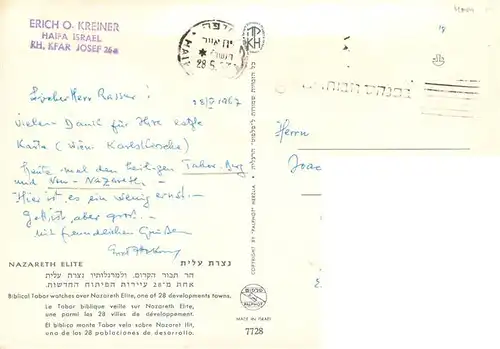 ERICH O. KREINER
HAIFA ISRAEL
KH. KFAR JOSEF 26a
28/V 1967
Lieber Herr
Vielen Dank für Ihre letzte
Karte (Wien Karlskirche)
Heute mal den heiligen Tabor-Berg
und Neu-Nazareth.
Hier ist es ein wenig ernst.
Gott ist aber gross.
Mit freundlichen Grüßen
Herrn
NAZARETH ELITE נצרת עלית
הר תבור הקדום, ולמרגלותיו נצרת עלית
אחת מ־28 עיירות הפיתוח החדשות.
Biblical Tabor watches over Nazareth Elite, one of 28 developments towns.
Le Tabor biblique veille sur Nazareth Elite,
une parmi les 28 villes de développement.
El biblico monte Tabor vela sobre Nazaret Ilit,
uno de las 28 poblaciones de desarrollo.
PALPHOT
MADE IN ISRAEL
7728